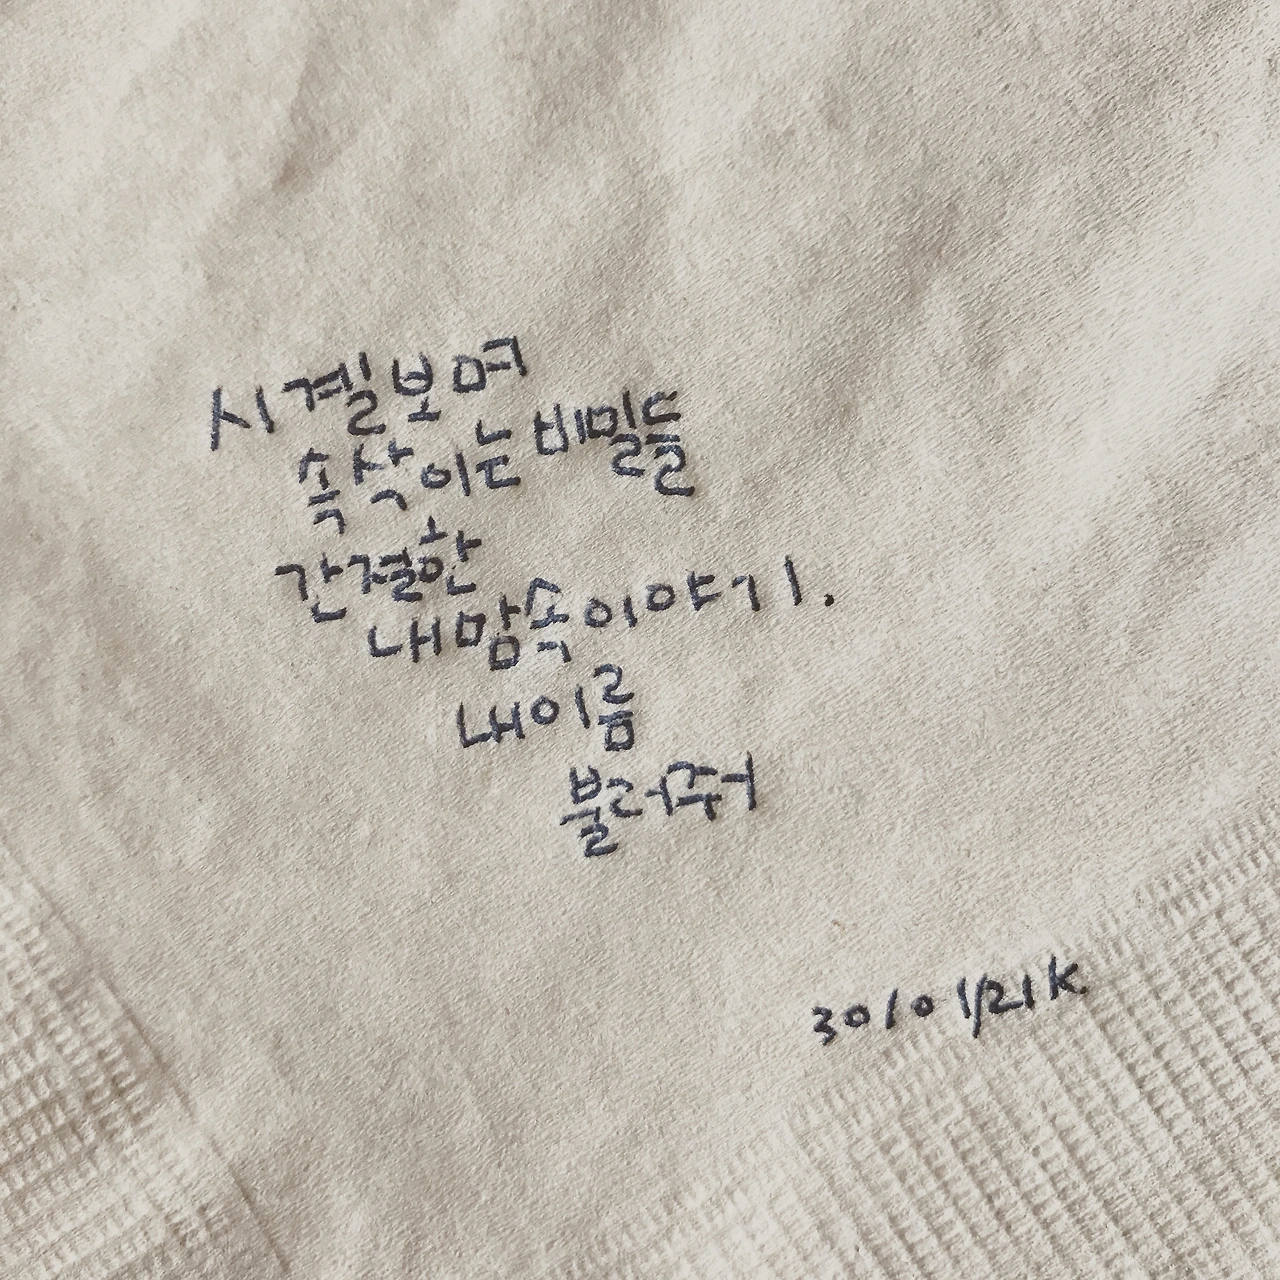 시곌 보며
속삭이는 비밀들
간절한
내 맘속 이야기.
내 이름
불러줘
30/01/21 K.